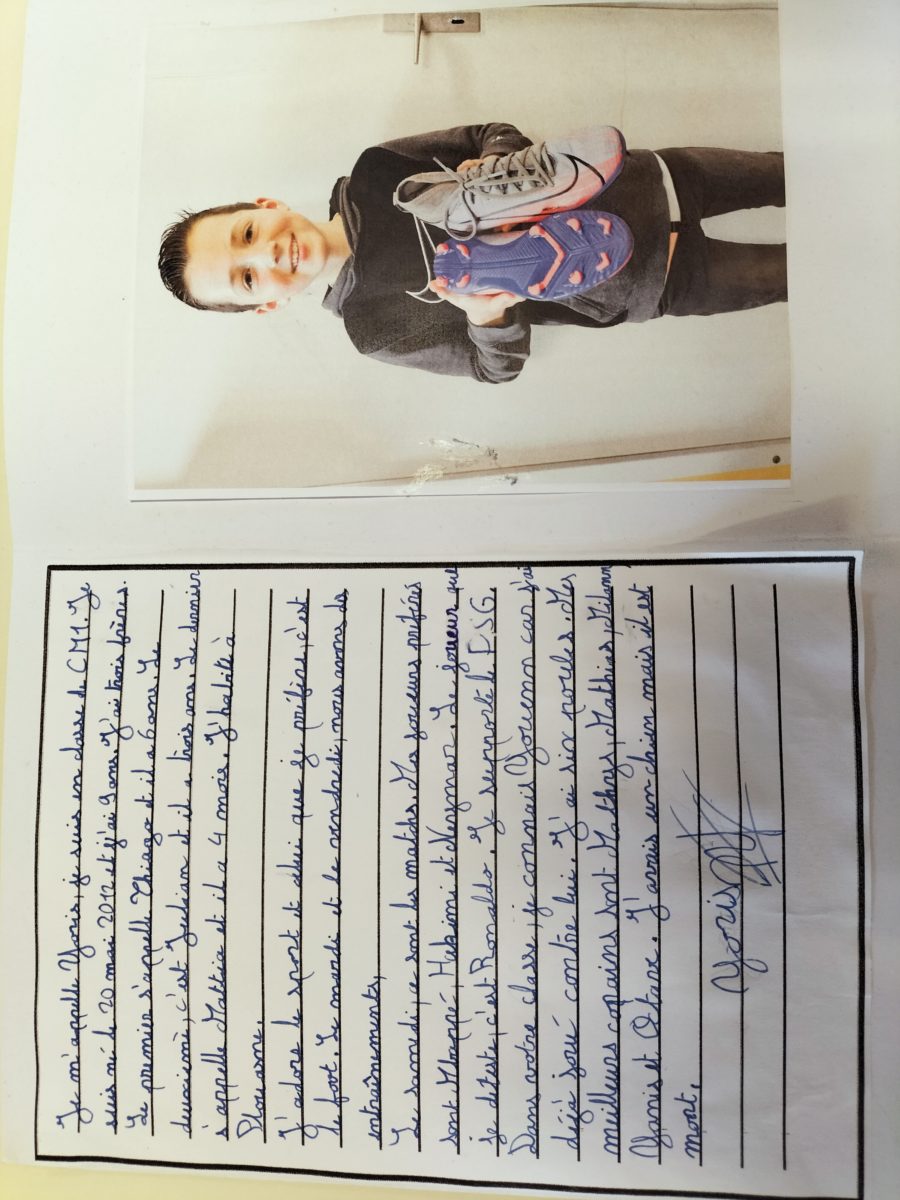 Je m'appelle Yoris, je suis en classe de CM1. Je
suis né le 20 mai 2012 et j'ai 9 ans. J'ai trois frères.
Le premier s'appelle Thiago et il a 6 ans. Le
deuxième, c'est Julian et il a trois ans. Le dernier
s'appelle Mattéo et il a 4 mois. J'habite à
J'adore le sport et celui que je préfère, c'est
le foot. Le mardi et le vendredi, nous avons des
entraînements,
Le samedi, ce sont les matchs. Mes joueurs préférés
sont Mbappé, Hakimi et Neymar. Le joueur que
je déteste, c'est Ronaldo. Je supporte le PSG.
Dans votre classe, je connais Youenn car j'ai
déjà joué contre lui. J'ai six poules. Mes
meilleurs copains sont Mathys, Mathias,
Yanis et Octave. J'avais un chien mais il est
mort.
Yoris